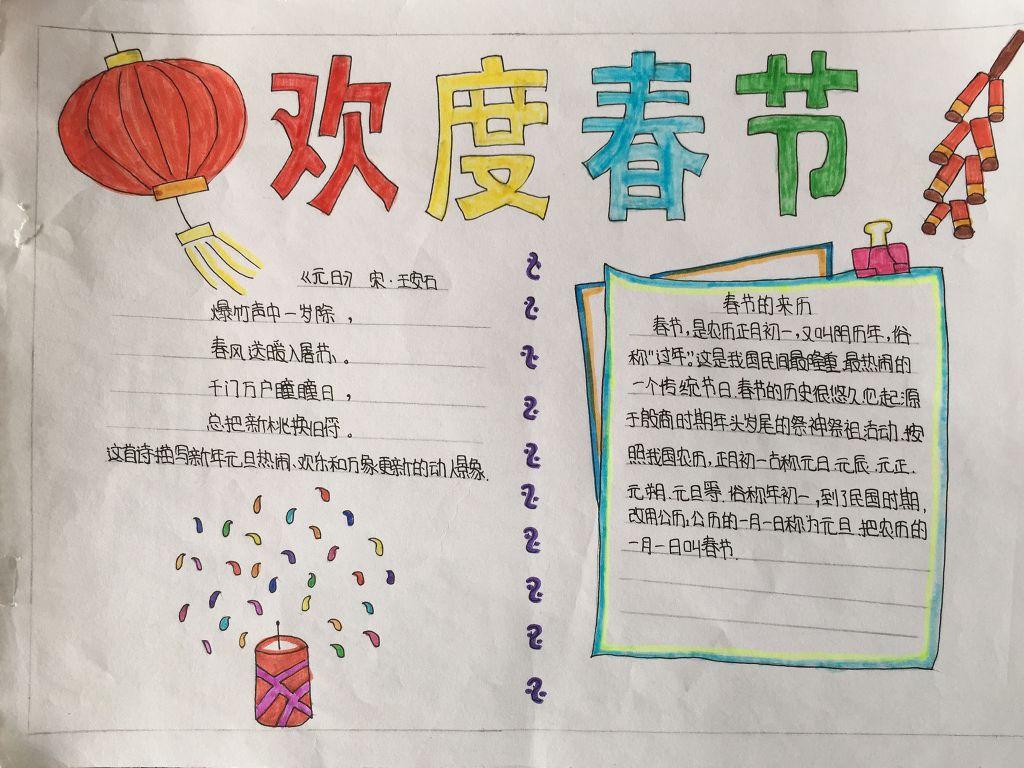 欢度春节
《元日》 宋·王安石
爆竹声中一岁除，
春风送暖入屠苏。
千门万户曈曈日，
总把新桃换旧符。
这首诗描写新年元旦热闹、欢乐和万象更新的动人景象.
春节的来历
春节，是农历正月初一，又叫阴历年，俗
称"过年"。这是我国民间最隆重.最热闹的
一个传统节日.春节的历史很悠久.它起源
于殷商时期年头岁尾的祭神祭祖活动.按
照我国农历，正月初一古称元日.元辰.元正.
元朔.元旦等.俗称年初一，到了民国时期，
改用公历，公历的一月一日称为元旦.把农历的
一月一日叫春节.